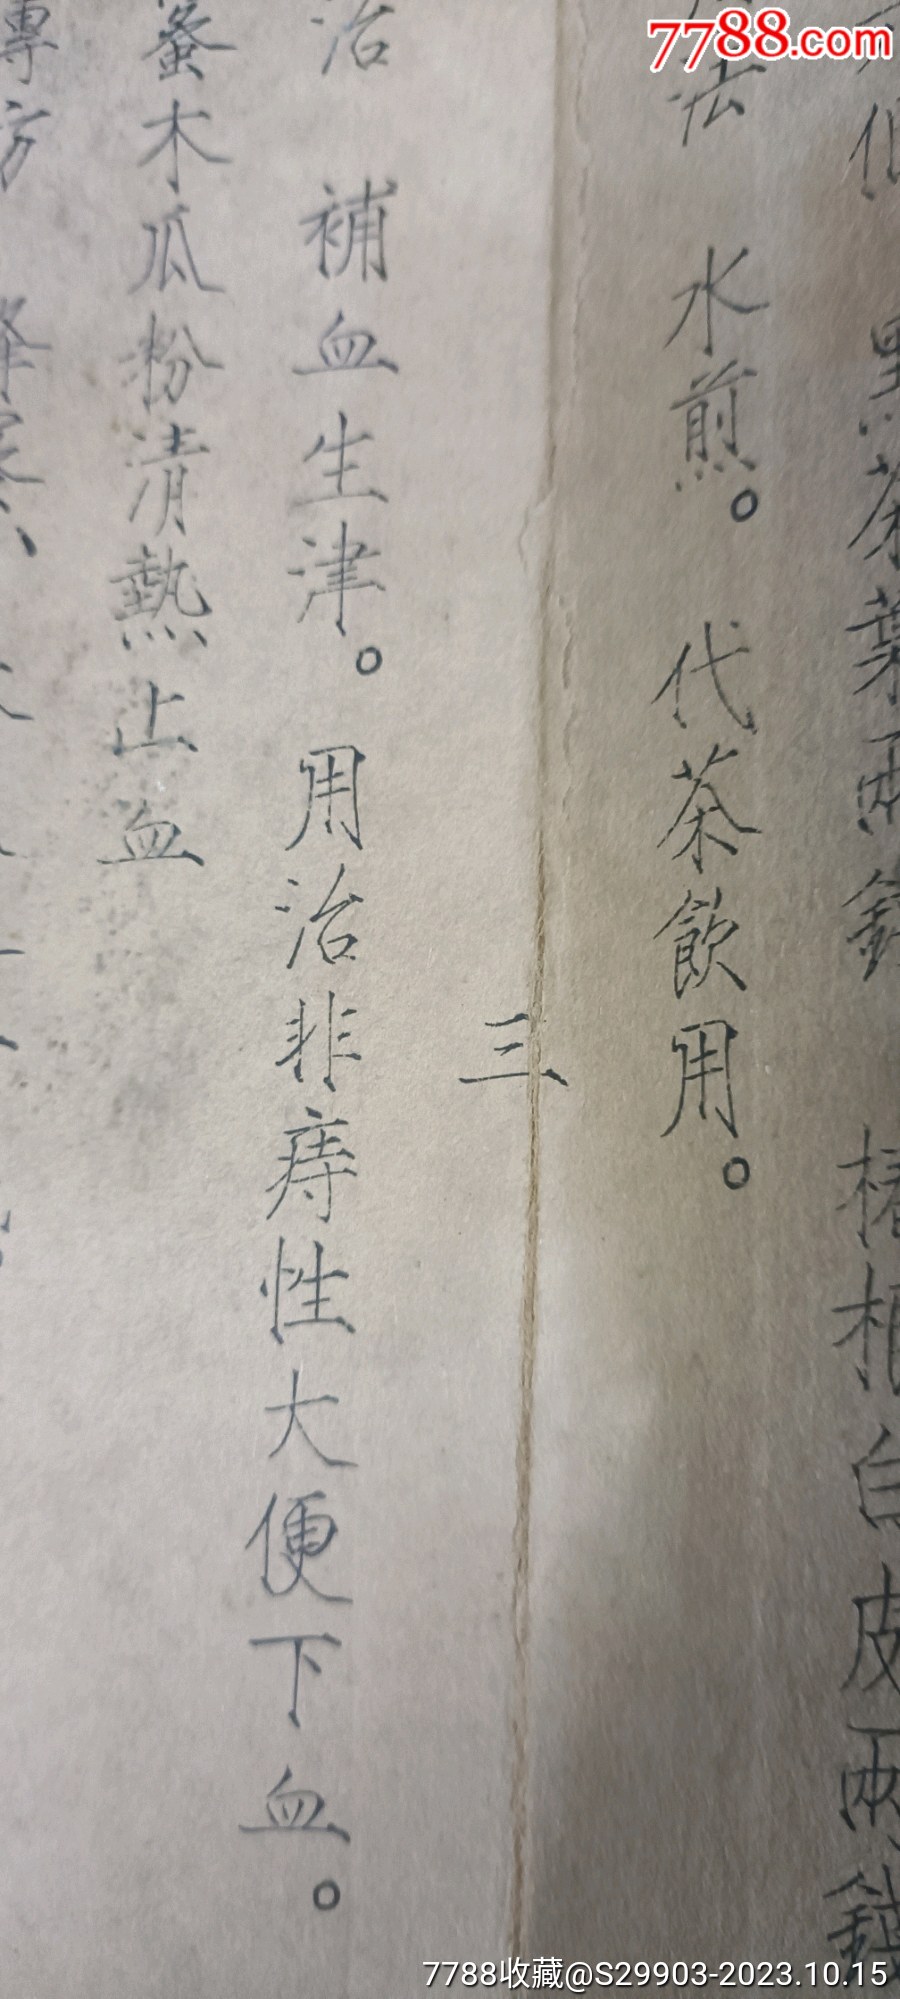 7788.com
黑茶葉兩錢 椿根白皮兩錢
法 水煎。 代茶飲用。
三
治 補血生津。 用治非痔性大便下血。
蚤木瓜粉清熱止血
專方
7788收藏@S29903-2023.10.15